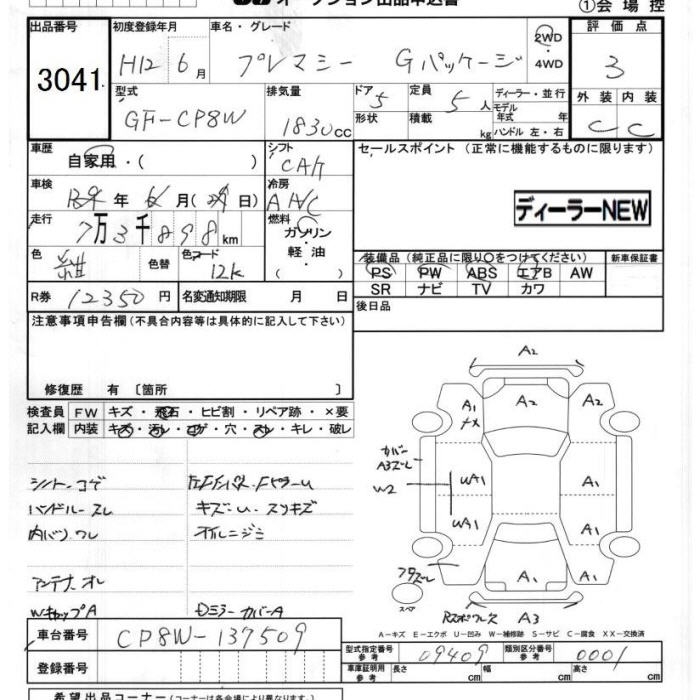 オークション出品申込書
①会場控
出品番号 初度登録年月 車名・グレード 評価点
3041 H12 6月 プレマシー Gパッケージ 2WD・4WD 3
型式 排気量 ドア 定員 ディーラー・並行 外装 内装
GF-CP8W 1830cc 5 5人 モデル年式 年 C C
形状 積載 kg ハンドル 左・右
車歴 シフト セールスポイント (正常に機能するものに限ります)
自家用・( ) CAT
車検 冷房
年 月( 日) AAC
ディーラーNEW
走行 燃料
7万3千898km ガソリン・軽油・
色 色替 色コード 装備品(純正品に限り○をつけてください) 新車保証書
紺 12k PS PW ABS エアB AW
SR ナビ TV カワ
R券 12350円 名変通知期限 月 日 後日品
注意事項申告欄(不具合内容等は具体的に記入して下さい)
修復歴 有〔箇所 〕
検査員 FW キズ・飛石・ヒビ割・リペア跡・×要
記入欄 内装 キズ・汚レ・コゲ・穴・スレ・キレ・破レ
シートコゲ
ハンドルスレ キズ・U・スリキズ
内バリワレ オイルニジミ
アンテナオレ
WキャップA DミラーカバーA
A2
A1 A2 A2
カバー
A3ズレ
W2 UA1 A1
UA1 A1
A1 A1
スペア
A3
A-キズ E-エクボ U-凹み W-補修跡 S-サビ C-腐食 XX-交換済
車台番号 CP8W-137509
型式指定番号 09409 類別区分番号 0001
登録番号 車庫証明用参考 長さ cm 幅 cm 高さ cm
希望出品コーナー(コーナーは各会場により異なります。)